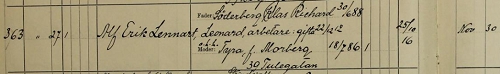 Fader: Söderberg Klas Richard 30/1 688
363 " 27 1 Alf Erik Lennart, Leonard, arbetare: gifta 22/2 12 25/10 16 Nov 30
o.h.h.
Moder: Syra f. Morberg 18/7 86 1
30 Tulegatan